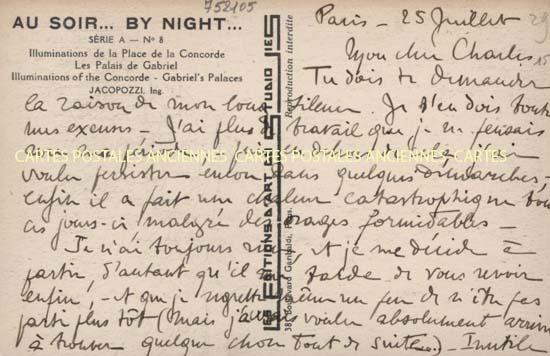 752105
AU SOIR... BY NIGHT...
SÉRIE A — Nº 8
Illuminations de la Place de la Concorde
Les Palais de Gabriel
Illuminations of the Concorde - Gabriel's Palaces
JACOPOZZI, Ing.
LES EDITIONS D'ART STUDIO
38, Boulevard Garibaldi, Paris.
Reproduction interdite
Paris - 25 Juillet 29
Mon cher Charles
Tu dois te demander
la raison de mon long silence. Je t'en dois toutes
mes excuses - J'ai plus de travail que je ne pensais
CARTES POSTALES ANCIENNES CARTES POSTALES ANCIENNES CARTES
voulu persister encore dans quelques démarches,
enfin il a fait une chaleur catastrophique tous
ces jours-ci malgré des orages formidables -
Je n'ai toujours rien, et je me décide à
partir, d'autant qu'il me tarde de vous revoir
enfin, - et que je regrette même un peu de n'être pas
parti plus tôt (mais j'avais voulu absolument arriver
à trouver quelque chose tout de suite). Inutile